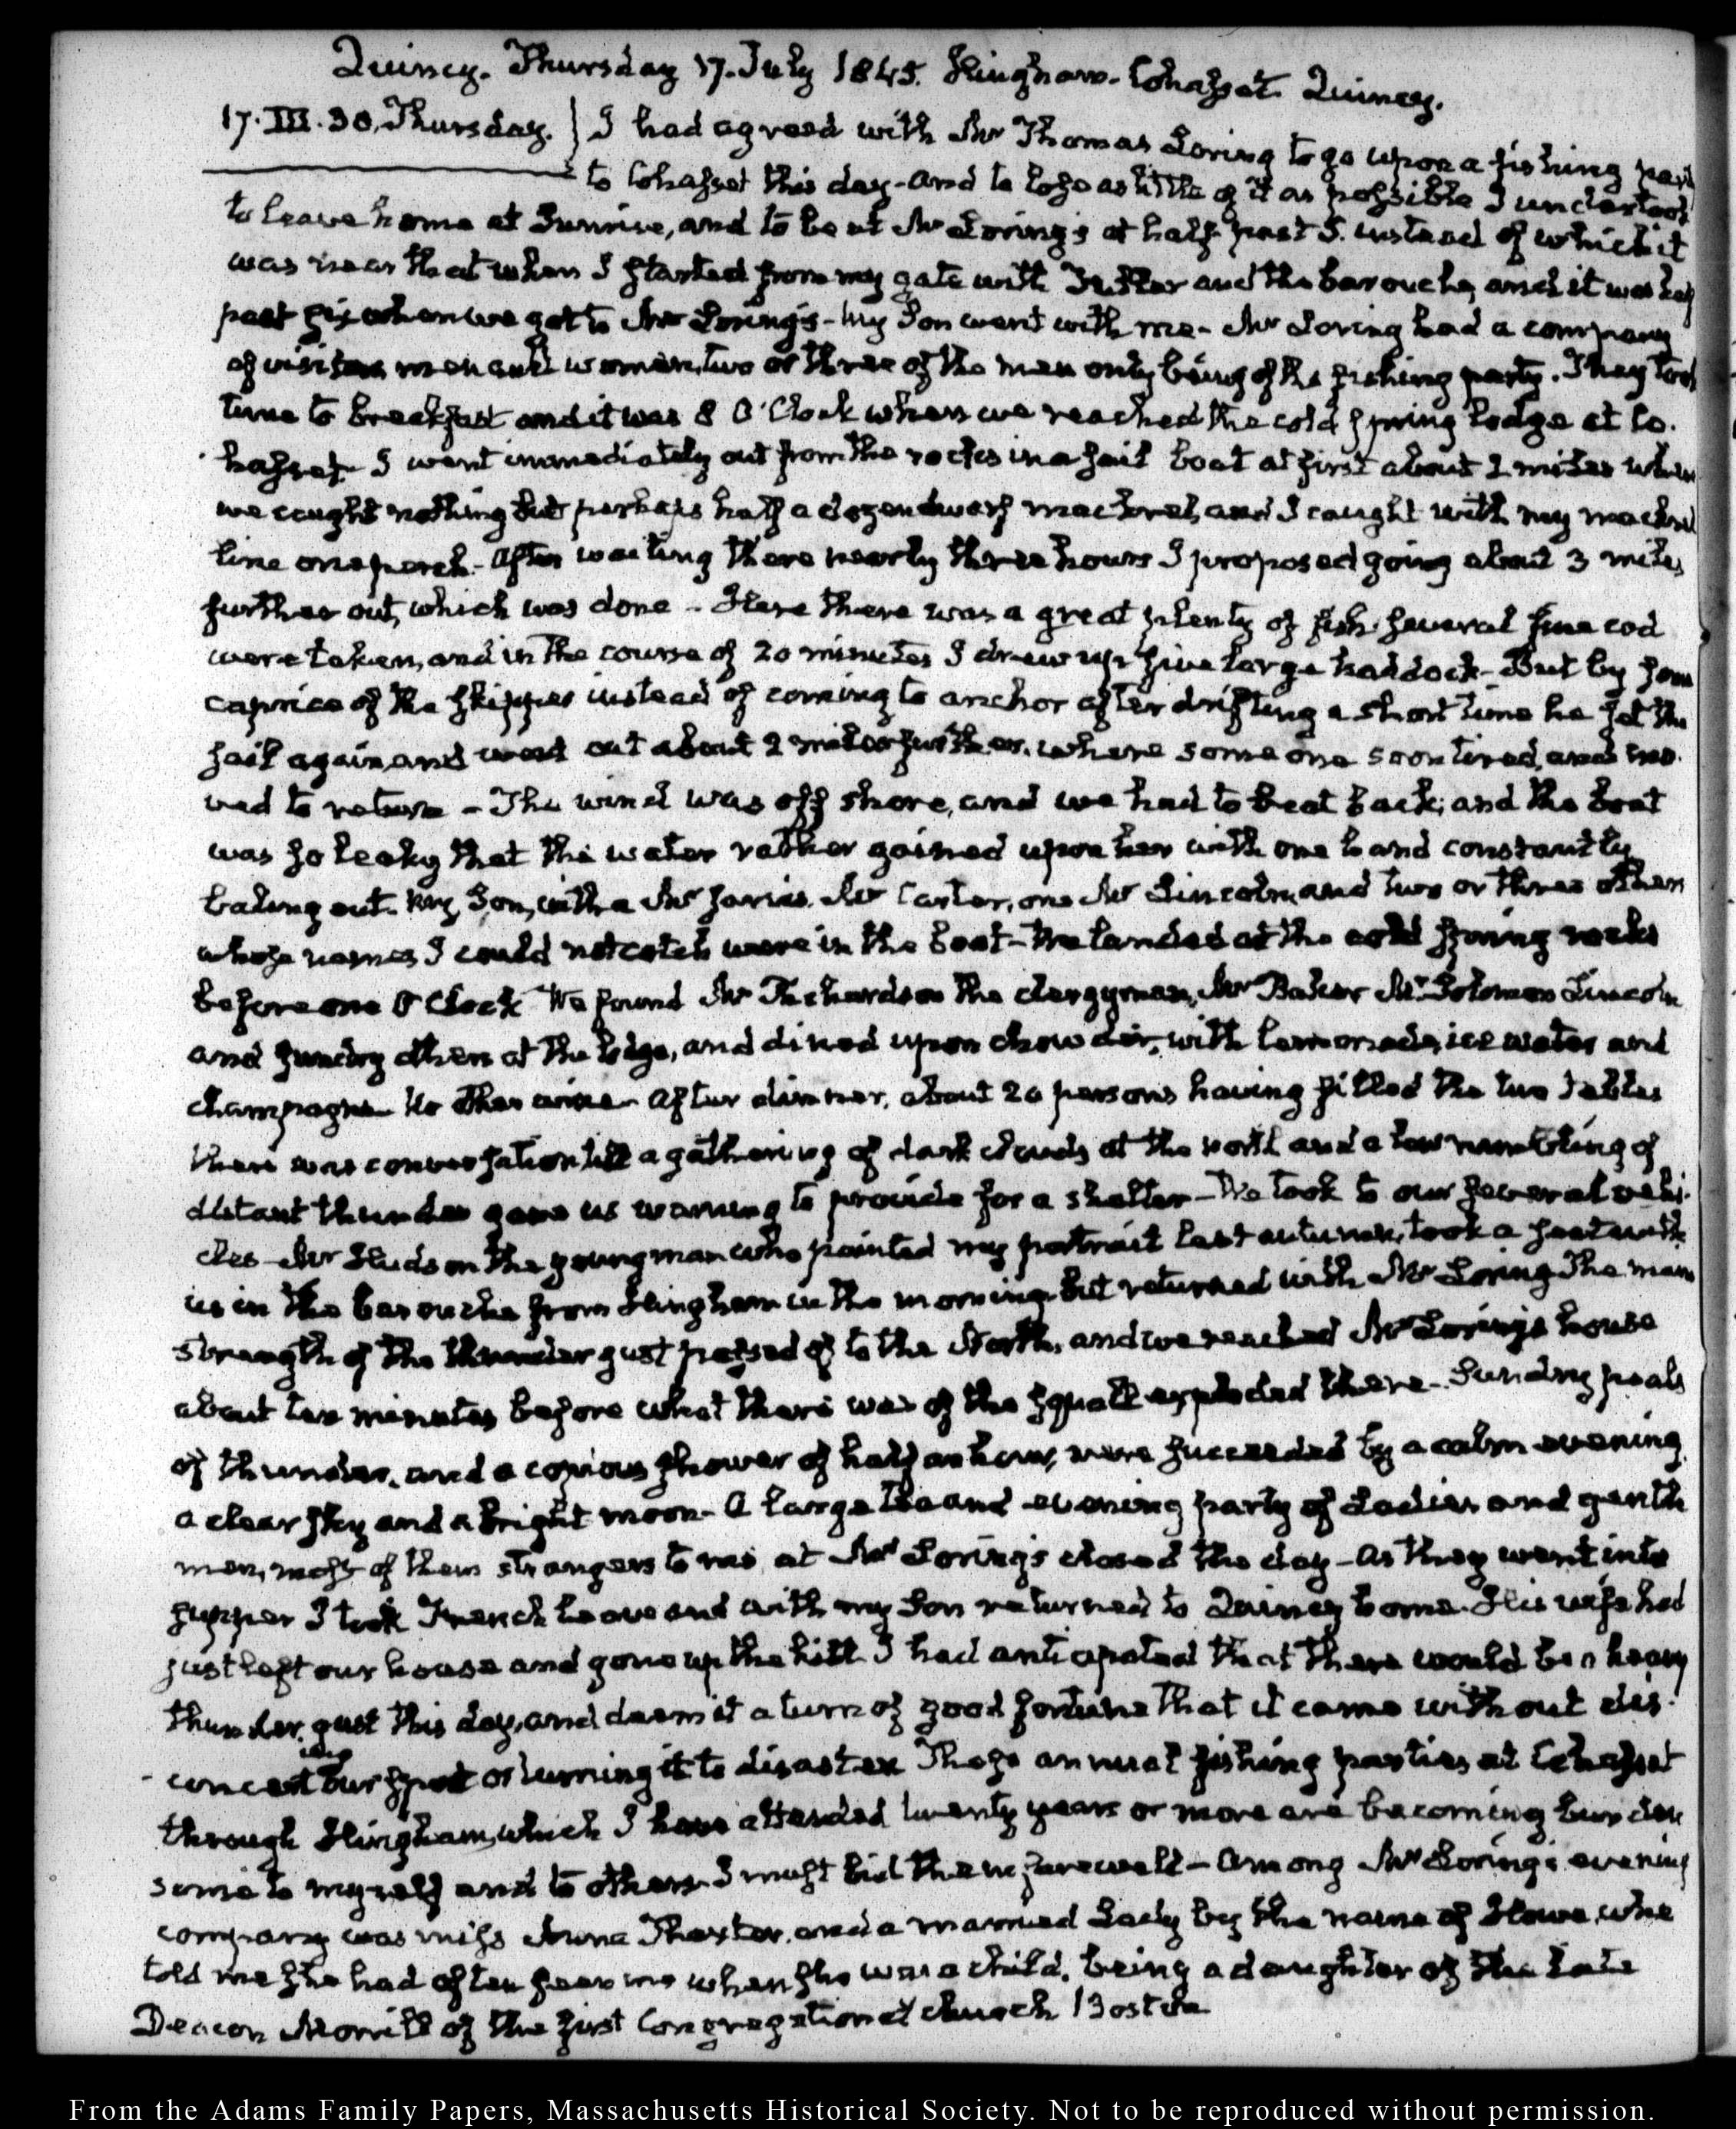 Quincy. Thursday 17. July 1845. Hingham. Cohasset. Quincy.
17. III. 30. Thursday. } I had agreed with Mr Thomas Loring to go upon a fishing
to Cohasset this day - and to lose as little of it as possible I undertook
to leave home at Sunrise, and to be at Mr Loring's at half past 5. instead of which it
was near that when I started from my gate with and the barouche, and it was half
past six when we got to Mr Loring's - My Son went with me - Mr Loring had a company
of visitors men and women, two or three of the men only being of the fishing party. They took
time to breakfast and it was 8 O'Clock when we reached the cold spring lodge at Co-
hasset. I went immediately out from the rocks in a sail boat at first about 2 miles where
we caught nothing but perhaps half a dozen dwarf mackerel, and I caught with my mackerel
line one perch. After waiting there nearly three hours I proposed going about 3 miles
further out, which was done - Here there was a great plenty of fish. Several fine cod
were taken, and in the course of 20 minutes I drew up five large haddock - But by some
caprice of the skipper instead of coming to anchor after drifting a short time he set the
sail again, and went out about 2 miles further. where some one soon tired, and
to return - The wind was off shore, and we had to beat back; and the boat
was so leaky that the water rather gained upon her with one hand constantly
baling out. My Son, with a Mr Mr Carter, one Mr Lincoln, and two or three others
whose names I could not catch were in the boat - We landed at the cold spring rocks
before one O'Clock We found Mr Richardson the clergyman, Mr Baker Mr Solomon Lincoln
and sundry others at the lodge, and dined upon chowder, with lemonade, ice water and
champagne. No other wine - After dinner, about 20 persons having filled the two tables
there was conversation till a gathering of dark clouds at the north and a low rumbling of
distant thunder gave us warning to provide for a shelter - We took to our several vehi-
cles - Mr Hudson the young man who painted my portrait last autumn, took a seat with
us in the barouche from Hingham in the morning but returned with Mr Loring The main
strength of the thunder gust passed off to the North, and we reached Mr Loring's house
about ten minutes before what there was of the squall exploded there - Sundry peals
of thunder, and a copious shower of half an hour, were succeeded by a calm evening
a clear sky and a bright moon - A large tea and evening party of Ladies and gentle
men, most of them strangers to me, at Mr Loring's closed the day - As they went into
supper I took French leave and with my Son returned to Quincy home. His wife had
just left our house and gone up the hill. I had anticipated that there would be a heavy
thunder gust this day, and deem it a turn of good fortune that it came without dis-
concerting our sport or turning it to disaster. These annual fishing parties at Cohasset
through Hingham, which I have attended twenty years or more are becoming burden
some to myself and to others. I must bid them farewell - Among Mr Loring's evening
company was Miss Thaxter, and a married Lady by the name of Howe, who
told me she had often seen me when she was a child, being a daughter of the late
Deacon Morrill of the first Congregational church Boston
From the Adams Family Papers, Massachusetts Historical Society. Not to be reproduced without permission.